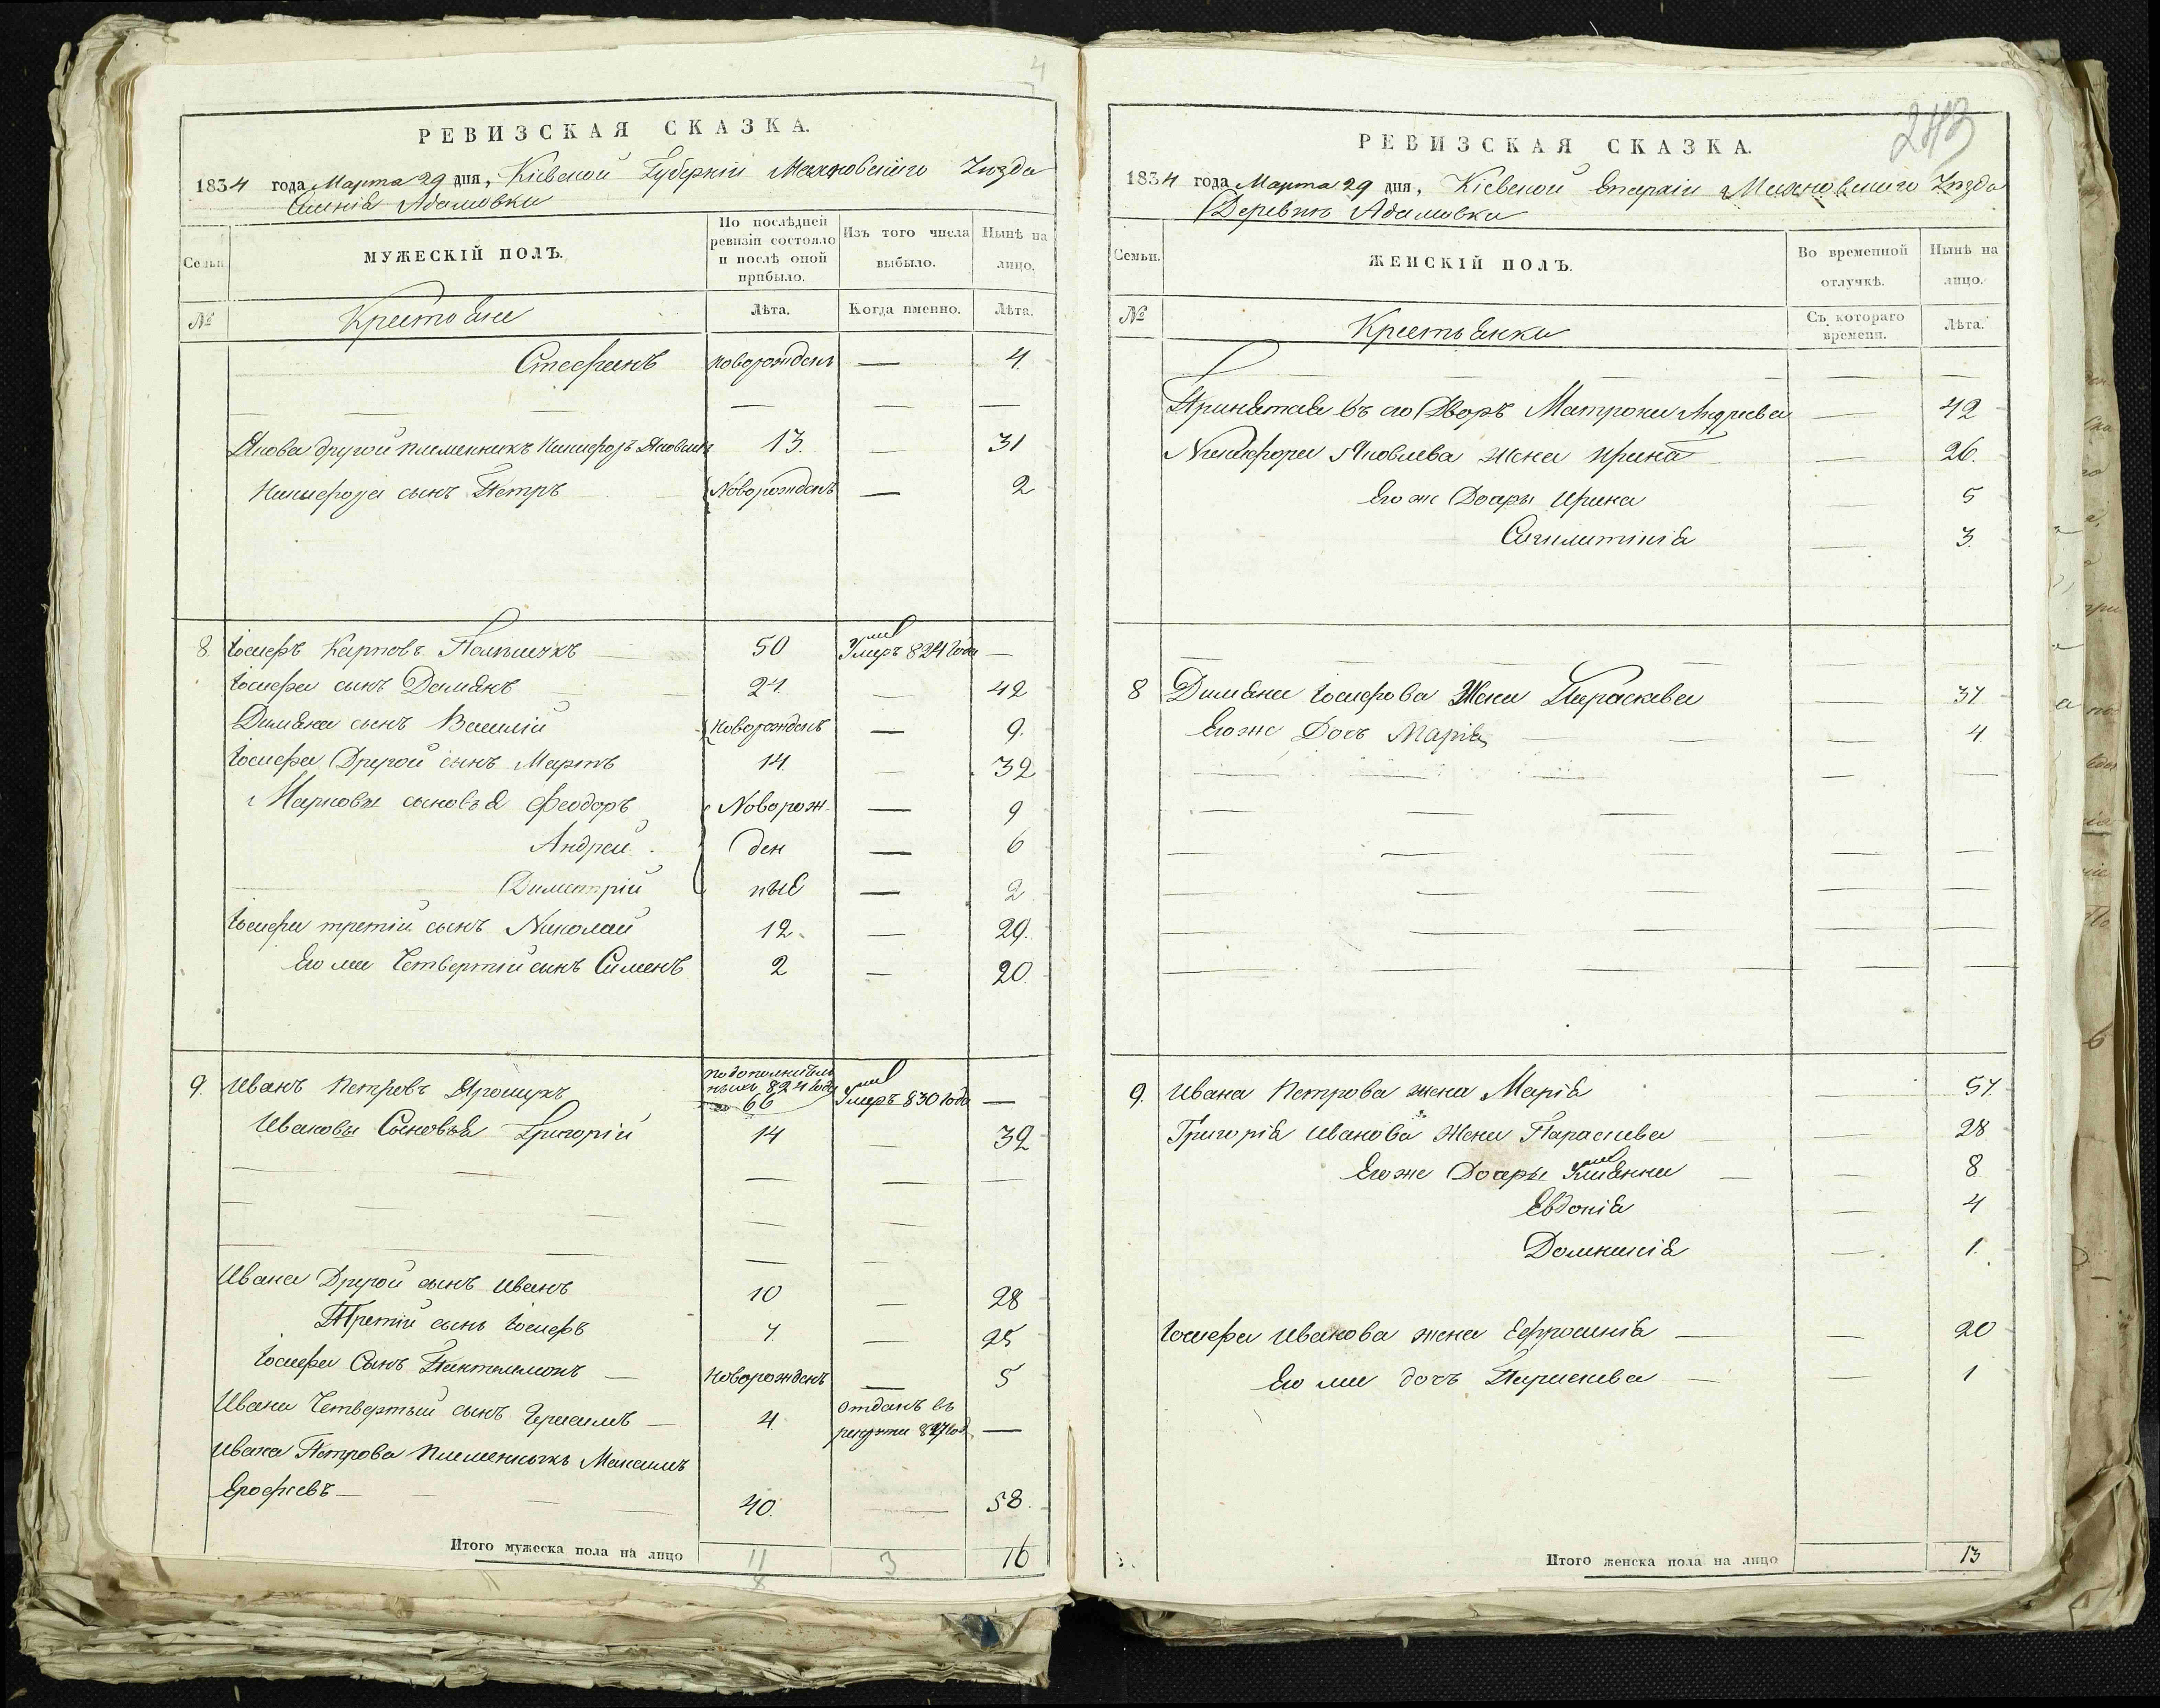 4
РЕВИЗСКАЯ СКАЗКА.
1834 года Марта 29 дня, Кіевской Губерніи Махновскаго Уѣзда
Имѣнія Адамовки
Семьи. МУЖЕСКІЙ ПОЛЪ. По послѣдней ревизіи состояло и послѣ оной прибыло. Изъ того числа выбыло. Нынѣ на лицо.
№ Крестьяне Лѣта. Когда именно. Лѣта.
Стефанъ новорожденъ — 4
— — — — — —
Якова другой племенникъ Никифоръ Яковлевъ 13. — 31
Никифора сынъ Петръ Новорожденъ — 2
8. Іосифъ Карповъ 50 Умеръ 824 Года —
Іосифа сынъ Демянъ 24. — 42
Димяна сынъ Василій Новорожденъ — 9.
Іосифа Другой сынъ Маркъ 14. — 32
Марковы сыновья Феодоръ Новорож — 9
Андрей ден — 6
Димитрій ные — 2
Іосифа третій сынъ Николай 12. — 29.
Его же Четвертій синъ Сименъ 2 — 20.
9. Иванъ Петровъ Ярощукъ по дополнительнымъ 824 году 66 Умеръ 830 года —
Ивановы Сыновья Григорій 14 — 32
— — — — —
— — — — —
— — — —
Ивана Другой сынъ Иванъ 10 — 28
Третій сынъ Іосифъ 7 — 25
Іосифа Сынъ Пантелемонъ — Новорожденъ — 5
Ивана Четвертый сынъ Герасимъ — 4. отданъ въ рекруты 827 год. —
Ивана Петрова Племенныкъ Максимъ
Ерофеевъ — 40. — 58.
Итого мужеска пола на лицо 11 3 16
243
РЕВИЗСКАЯ СКАЗКА.
1834 года Марта 29 дня, Кіевской Епархіи Махновскаго Уѣзда
Деревнѣ Адамовки
Семьи. ЖЕНСКІЙ ПОЛЪ. Во временной отлучкѣ. Нынѣ на лицо.
№ Крестьянки Съ котораго времени. Лѣта.
— — — — —
Принятая въ его Дворъ Матрона Андреева — 42
Никифора Яковлева жена Ирина — 26.
Его же Дочеры Ирина — 5
— 3.
— — — — —
8 Димяна Іосифова Жена Параскева — 37
Его же Дочъ Марія — 4
— — — — —
— — — — —
— — — — —
— — — — —
— — — — —
— — — — —
9. Ивана Петрова жена Марія — 57.
Григорія Иванова Жена Параскева — 28
Его же Дочеры Уліянна — 8
Евдокія — 4
Домникія — 1.
Іосифа Иванова жена Ефросинія — — 20
Его же дочъ Параскева — — 1
Итого женска пола на лицо 13